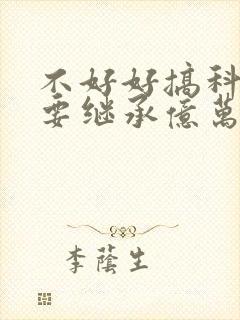 不好好搞科
要继承億萬
李蔭生